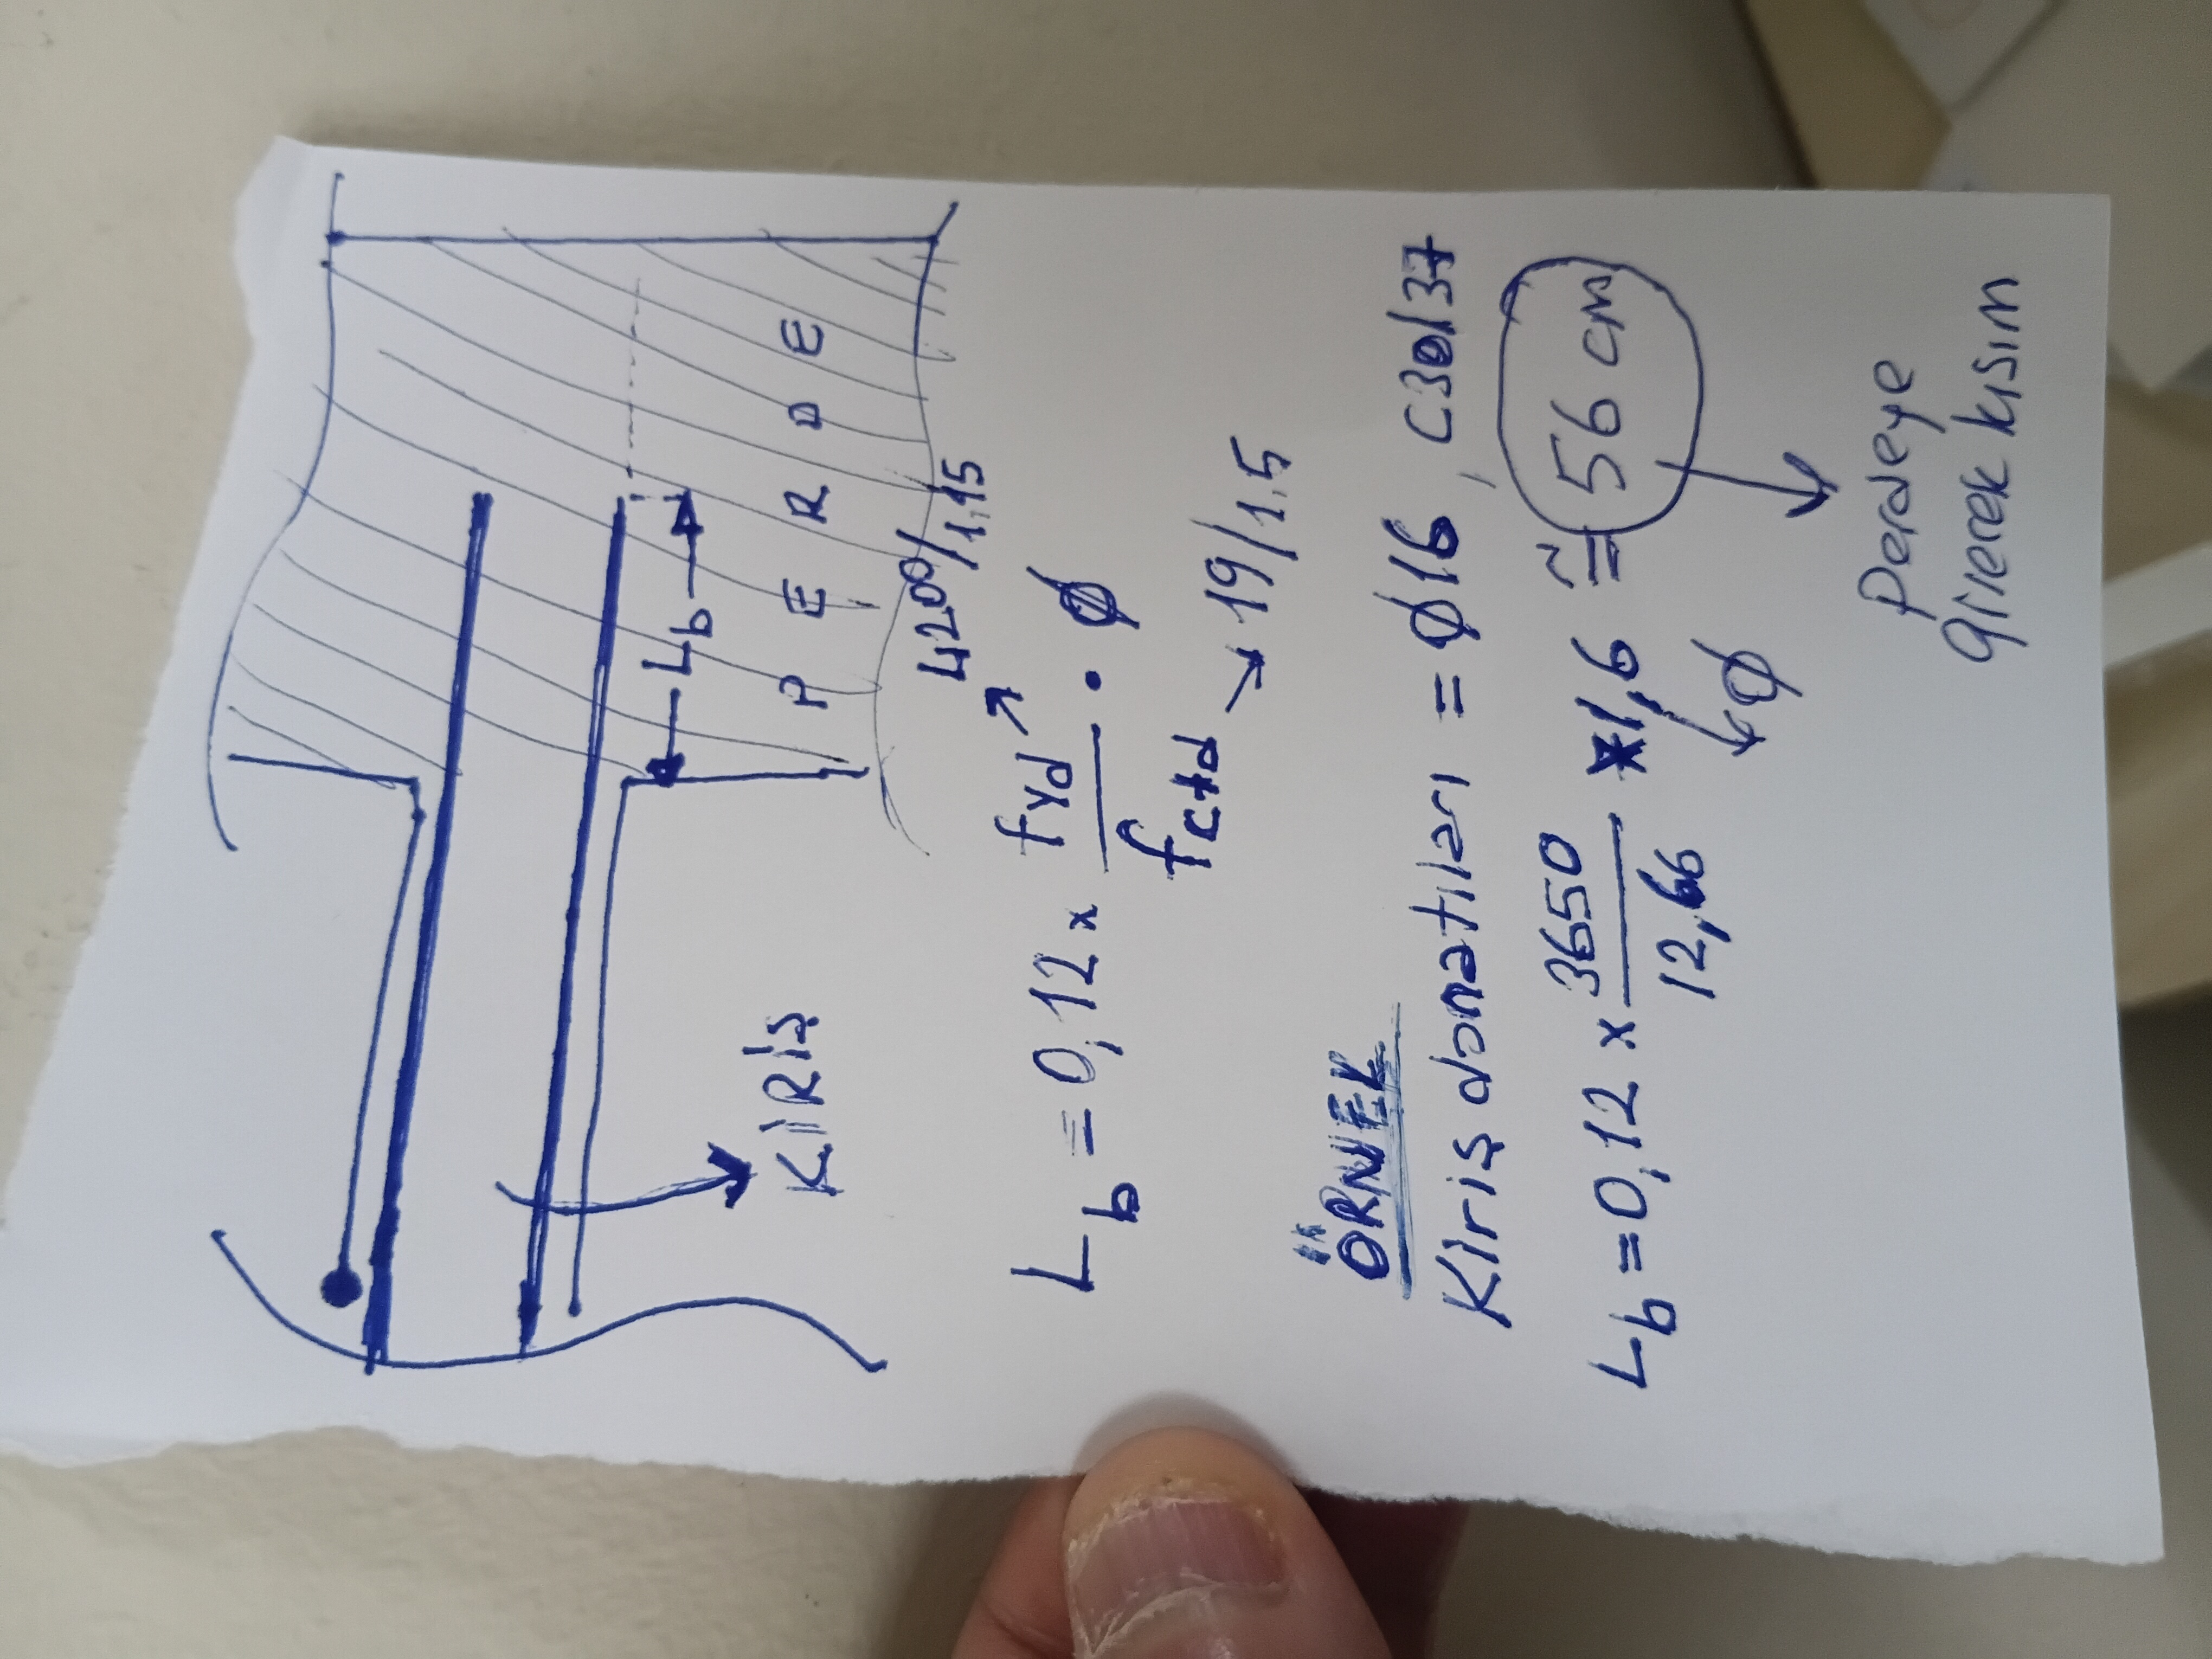 Lb
P E R D E
KİRİŞ
4200/1,15
Lb = 0,12 x fyd / fctd . ϕ
19/1.5
ÖRNEK
Kiriş donatıları = ϕ16, C30/37
Lb = 0,12 x 3650 / 12,66 * 1,6 ≅ 56 cm
ϕ
Perdeye
girecek kısım